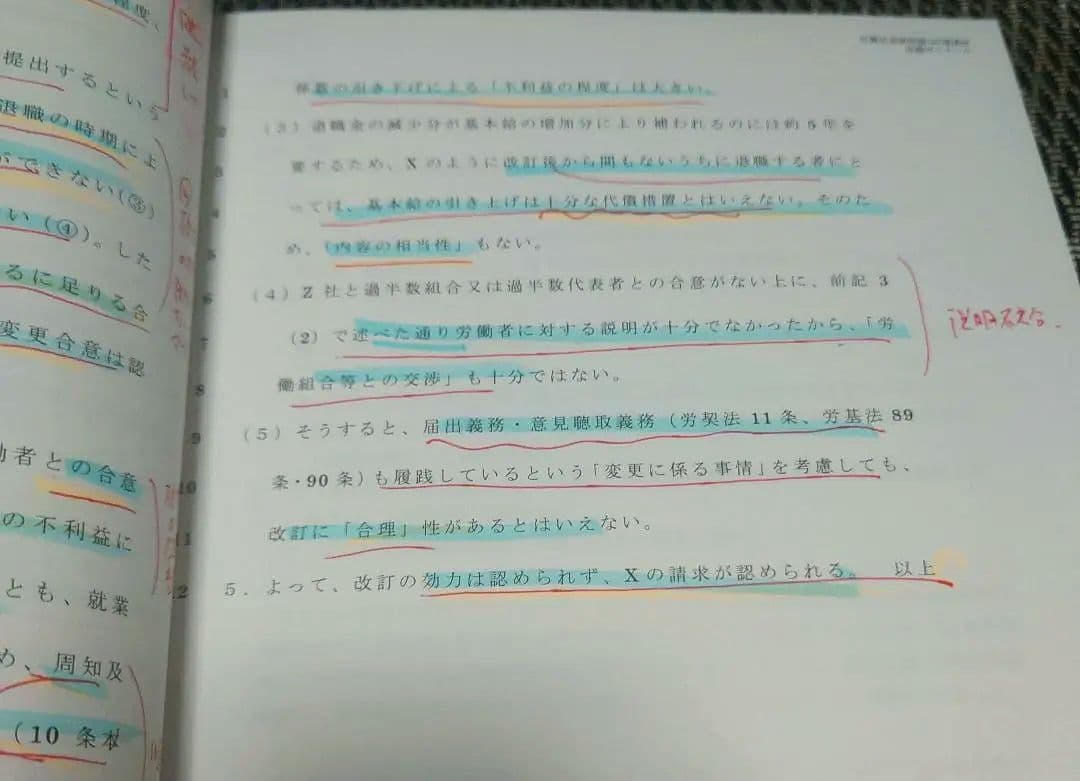 程度、
提出するという
退職の時期に上
ができない(③)
い(④)。した
るに足りる合
変更合意は認
働者との合意
の不利益に
とも、就業
め、周知及
(10 条本
の引き下げによる「不利益の程度」は大きい。
(3)退職金の減少分が基本給の増加分により補われるのには約 5 年を
要するため、X のように改訂後から間もないうちに退職する者にと
っては、基本給の引き上げは十分な代償措置とはいえない。そのた
め、「内容の相当性」もない。
(4)Z 社と過半数組合又は過半数代表者との合意がない上に、前記 3
(2)で述べた通り労働者に対する説明が十分でなかったから、「労
働組合等との交渉」も十分ではない。
(5)そうすると、届出義務・意見聴取義務(労契法 11 条、労基法 89
条・90 条)も履践しているという「変更に係る事情」を考慮しても、
改訂に「合理」性があるとはいえない。
5.よって、改訂の効力は認められず、X の請求が認められる。 以上
2
3
4
5
6
7
8
9
10
11
12
説明